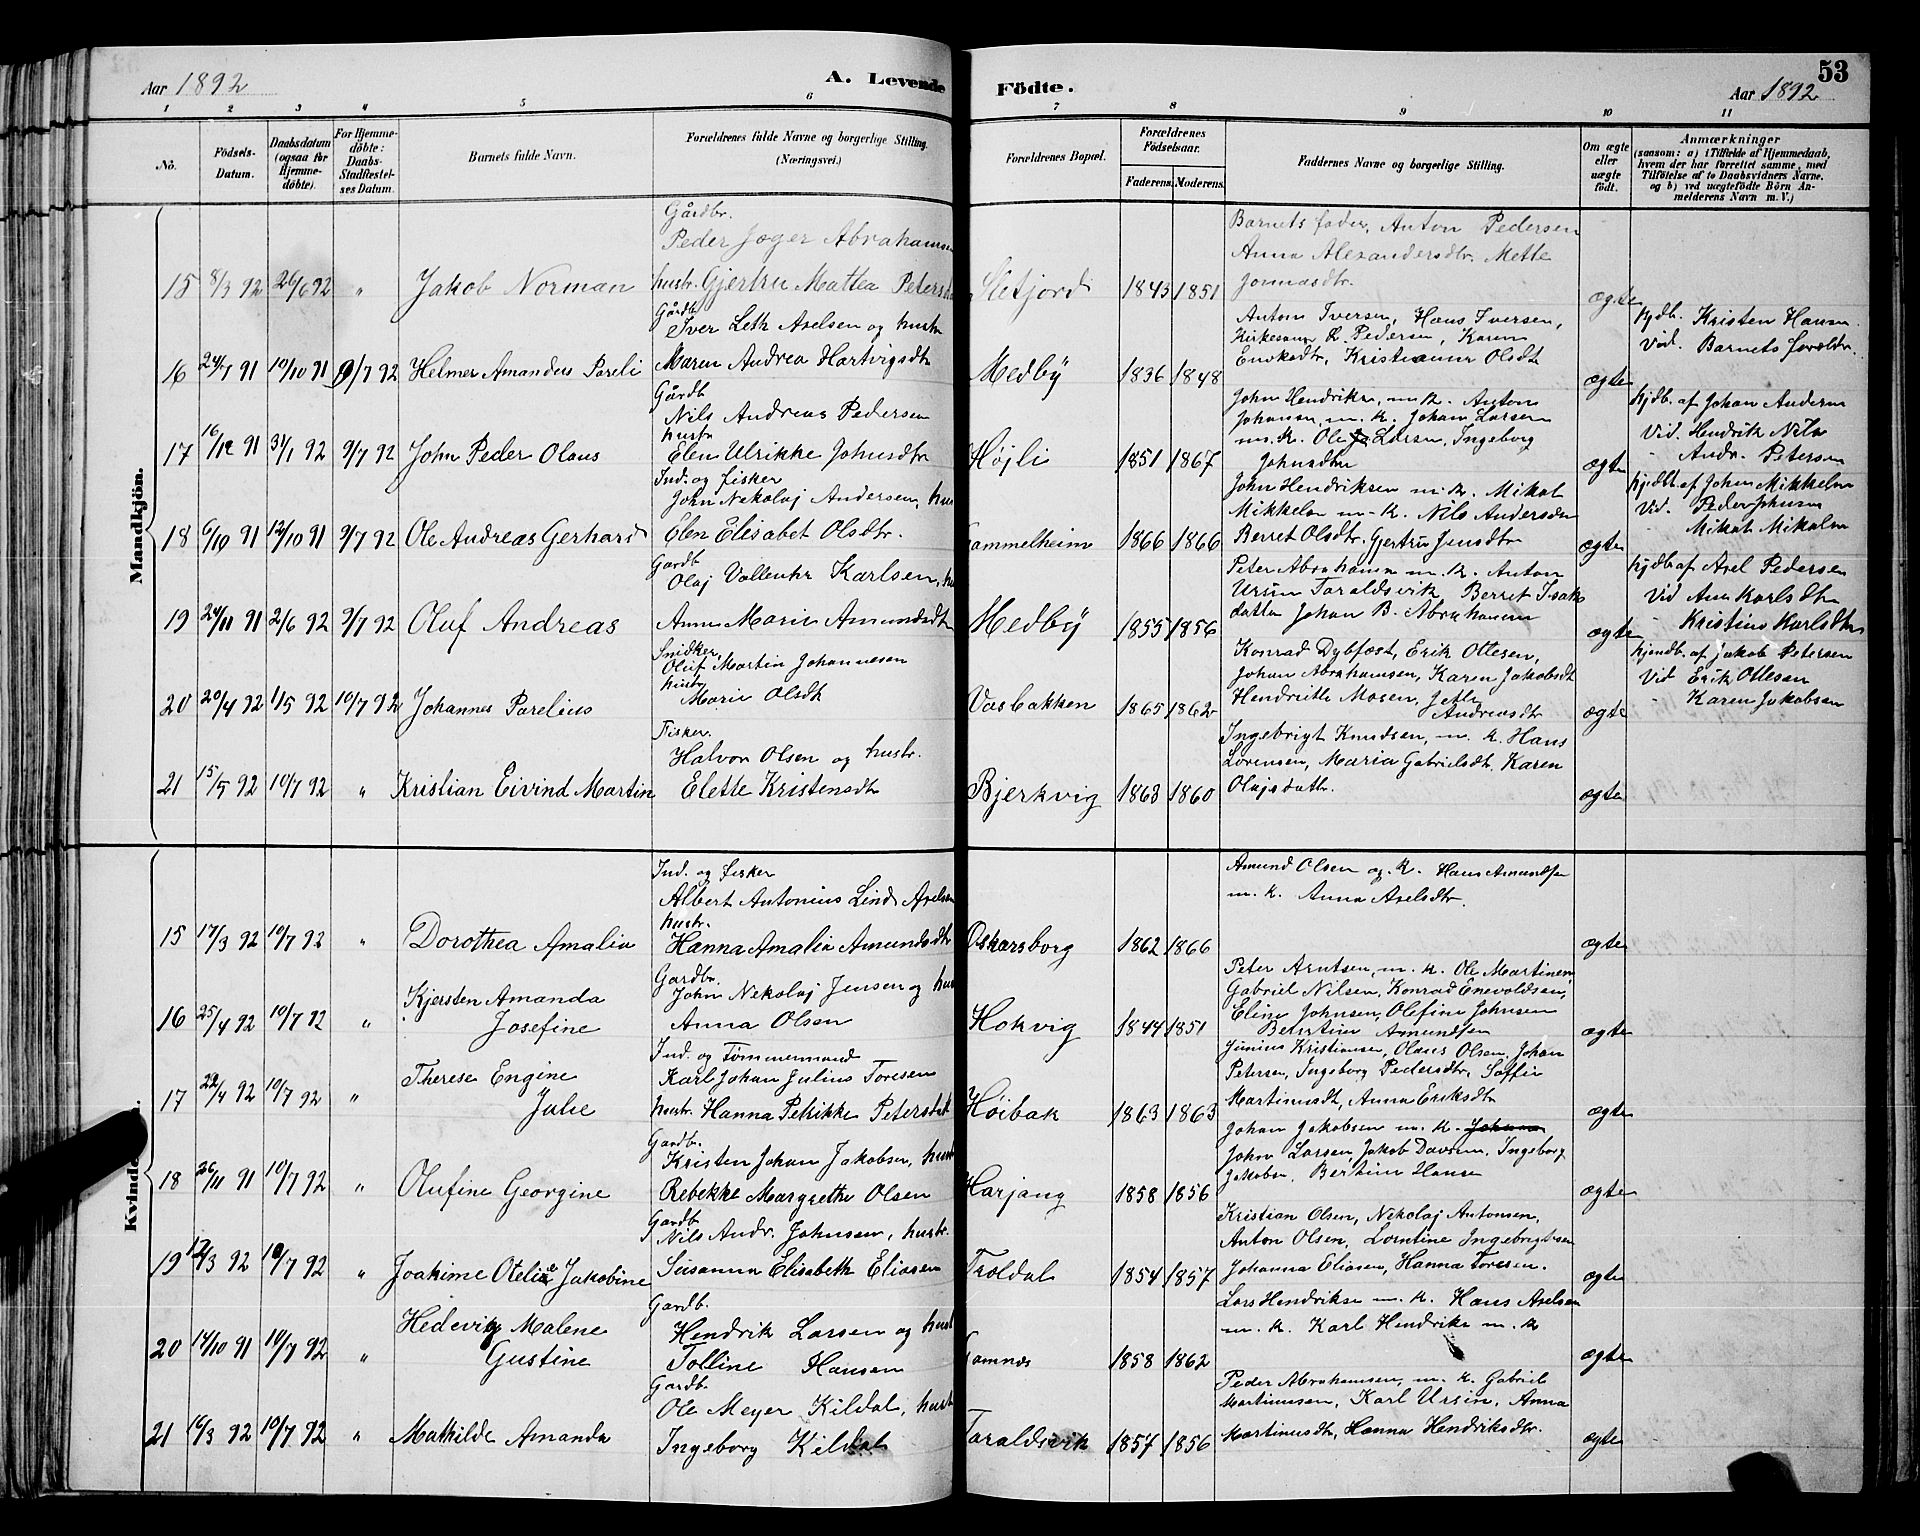 Aar 1892
A. Levende Födte.
53
Aar 1892
1 2 3 4 5 6 7 8 9 10 11
No.
Födsels-
Datum.
Daabsdatum
(ogsaa for
Hjemme-
döbte).
For Hjemme-
döbte:
Daabs-
Stadfæstel-
ses Datum.
Barnets fulde Navn.
Forældrenes fulde Navne og borgerlige Stilling.
(Næringsvei.)
Forældrenes Bopæl.
Forældrenes
Födselsaar.
Faderens. Moderens.
Faddernes Navne og borgerlige Stilling.
Om ægte
eller
uægte
födt.
Anmærkninger
(saasom: a) i Tilfælde af Hjemmedaab,
hvem der har forrettet samme, med
Tilföielse af to Daabsvidners Navne,
og b) ved uægtefödte Börn An-
melderens Navn m. V.)
Mandkjön.
15 8/3 92 26/6 92 " Jakob Norman
Gårdbr.
Peder Jæger Abrahamsen
hustr. Gjertru Mattea Petersd
Sletjord 1843 1851
Barnets fader, Anton Pedersen
Anna Alexandersdtr. Mette
Jonnasdtr.
ægte
16 24/7 91 10/10 91 9/7 92 Helmer Amandus Pareli
Gårdb
Iver Leth Axelsen og hustr
Maren Andrea Hartvigsdtr
Medby 1836 1848
Anton Iversen, Hans Iversen,
Kirkesanger L. Pedersen, Karen
Enoksdtr, Kristianne Olsdt
ægte
hjdb. Kristen Hansen
Vid. Barnets forældr.
17 16/12 91 31/1 92 9/7 92 John Peder Olaus
Gårdb
Nils Andreas Pedersen
hustr
Elen Ulrikke Johnsdtr
Højli 1851 1867
John Hendriksn, m. K. Anton
Johansen m. K. Johan Larsen
m. K. Ole Larsen, Ingeborg
Johnsdtr
ægte
hjdb. af Johan Andersn
Vid. Hendrik Nilsn
- Andr. Petersen
18 6/10 91 12/10 91 9/7 92 Ole Andreas Gerhard
Ind. og fisker
John Nekolaj Andersen, hus
Elen Elisabet Olsdtr.
Gammelheim 1866 1866
John Hendriksen m. K. Mikal
Mikkelsn m. K. Nils Andersen
Berret Olsdtr. Gjertru Jensdtr
ægte
hjdb. af Johan Mikkelsn
Vid. Peder Johnsn
- Mikal Mikalsn
19 24/11 91 2/6 92 9/7 92 Oluf Andreas
Gardb
Olaj Vollenhr Karlsen, hu
Anne Marie Amundsdtr
Medby 1855 1856
Peter Abrahamsn m. K. Anton
Ursin Taraldsvik Berret Isaks
datter Johan B. Abrahamsn
ægte
hjdb. af Axel Pedersen
Vid Ane Karlsdtr
- Kristine Karlsdtr
20 20/4 92 1/5 92 10/7 92 Johannes Parelius
Snidker,
Oluf Martin Johannesen
hustr
Marie Olsdt
Vasbakken 1865 1862
Konrad Dybfost, Erik Ottesen,
Johan Abrahamsen, Karen Jakobsdt
Hendritte Mosen, Jette
Andreasdtr
ægte
hjemdb. af Jakob Petersen
Vid Erik Ottesen
- Karen Jakobsen
21 15/5 92 10/7 92 " Kristian Eivind Martin
Fisker.
Halvor Olsen og hustr.
Elette Kristensdtr
Bjerkvig 1863 1860
Ingebrigt Knudsen, m. K. Hans
Lorensen, Maria Gabrielsdt. Karen
Olajsdattr.
ægte
Kvinde
15 17/3 92 10/7 92 " Dorothea Amalia
Ind. og fisker
Albert Antonius Lind Axelsen
hustr.
Hanna Amalia Amundsdtr
Oskarsborg 1862 1866
Amund Olsen og K. Hans Amundsen
m. K. Anna Axelsdtr.
ægte
16 25/4 92 10/7 92 " Kjersten Amanda
Josefine
Gardbr.
John Nekolaj Jensen og hu
Anna Olsen
Hokvig 1844 1851
Peter Arntsen, m. K. Ole Martinsen
Gabriel Nilsen, Konrad Enevoldsen,
Eline Johnsen, Olefine Johnsen
Berntine Amundsen
ægte
17 22/4 92 10/7 92 " Therese Engine
Julie
Ind. og Tømmermand
Karl Johan Julius Toresen
hustr. Hanna Petrikke Petersdt
Høibak 1863 1863
Junius Kristiansen, Olaus Olsen, Johan
Petersen, Ingeborg Pedersdtr, Soffie
Martinusdt, Anna Eriksdtr
ægte
18 26/11 91 10/7 92 " Olufine Georgine
Gardbr.
Kristen Johan Jakobsen, hust
Rebekke Margrethe Olsen
Harjang 1858 1856
Johan Jakobsen m. K. Johan
John Larsen, Jakob Davsen, Ingeborg
Jakobsn, Bertine Hansn
ægte
19 12/3 92 10/7 92 " Joakime Otelie Jakobine
Gardb
Nils Andr. Johnsen, hustr.
Susanna Elisabeth Eliasen
Troldal 1854 1857
Kristian Olsen, Nekolaj Antonsen,
Anton Olsen, Lorntine Ingebrigtsen
Johanna Eliasen, Hanna Toresen.
ægte
20 14/10 91 10/7 92 " Hedevig Malene
Gustine
Gardb.
Hendrik Larsen og hust
Tolline Hansen
Gamnes 1858 1862
Lars Hendriksn m. K. Hans Axelsen
m. K. Karl Hendriksn m. K
ægte
21 16/3 92 10/7 92 " Mathilde Amanda
Gardb.
Ole Meyer Kildal, hust
Ingeborg Kildal
Taraldsvik 1857 1856
Peder Abrahamsen, m. K. Gabriel
Martinussen, Karl Ursin, Anna
Martinusdt, Hanna Hendriksdtr.
ægte